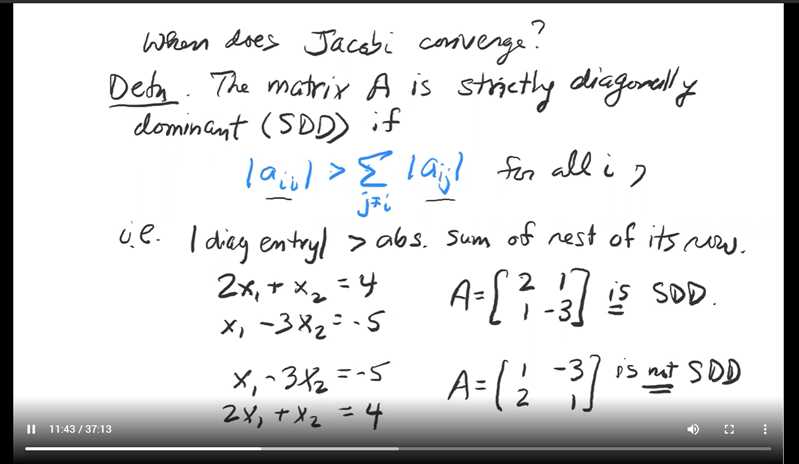 When does Jacobi converge?
Defn. The matrix A is strictly diagonally
dominant (SDD) if
|aᵢᵢ| > ∑_{j≠i} |aᵢⱼ| for all i,
i.e. |diag entry| > abs. sum of rest of its row.
2x₁ + x₂ = 4
x₁ - 3x₂ = -5
A = [2 1; 1 -3] is SDD.
x₁ - 3x₂ = -5
2x₁ + x₂ = 4
A = [1 -3; 2 1] is not SDD
11:43 / 37:13